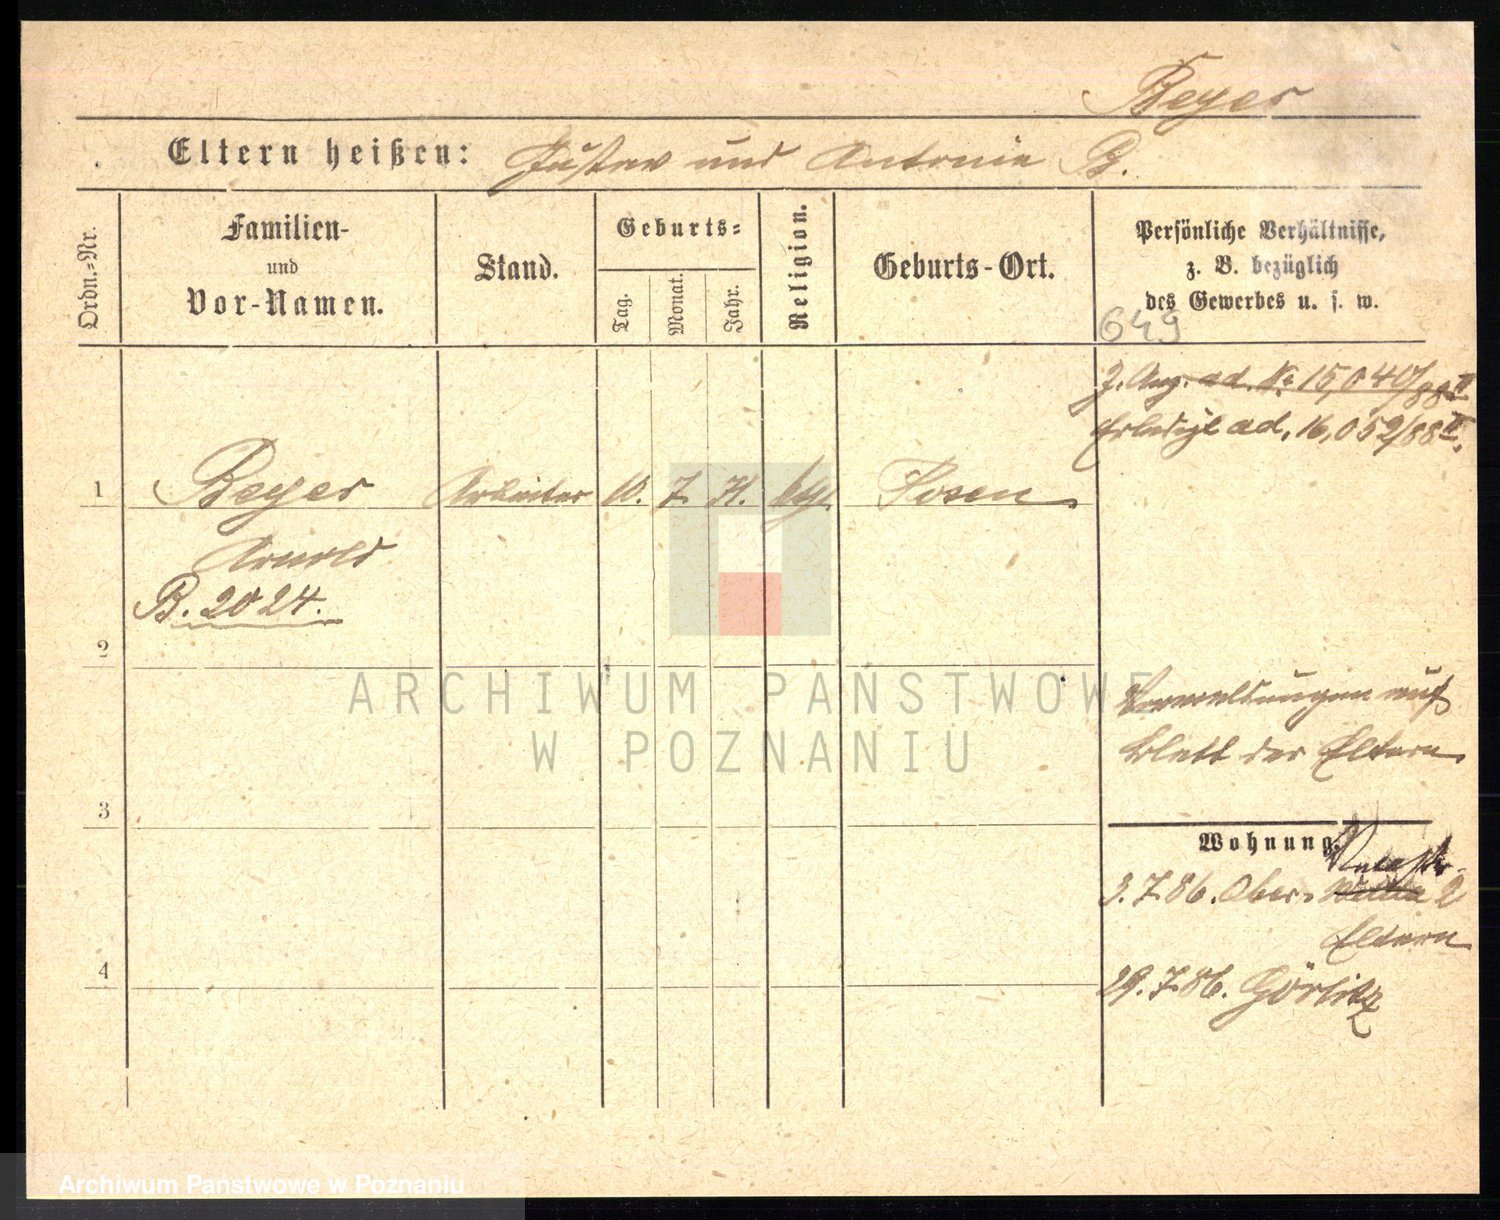 Beyer
Eltern heißen: Gustav und Antonie B.
Ordn.-Nr.
Familien-
und
Vor-Namen.
Stand.
Geburts-
Tag.
Monat.
Jahr.
Religion.
Geburts-Ort.
Persönliche Verhältnisse,
z. B. bezüglich
des Gewerbes u. s. w.
649
ad. No 15,040/88 II
Erledigt ad. 16,052/88 II.
1 Beyer Arbeiter 10. 7. Posen
Arnold
B. 2024.
2
auf
Blatt der Eltern
3
Wohnung.
3.7.86. Ober- 2
Eltern
4
29.7.86. Görlitz
ARCHIWUM PAŃSTWOWE
W POZNANIU
Archiwum Państwowe w Poznaniu